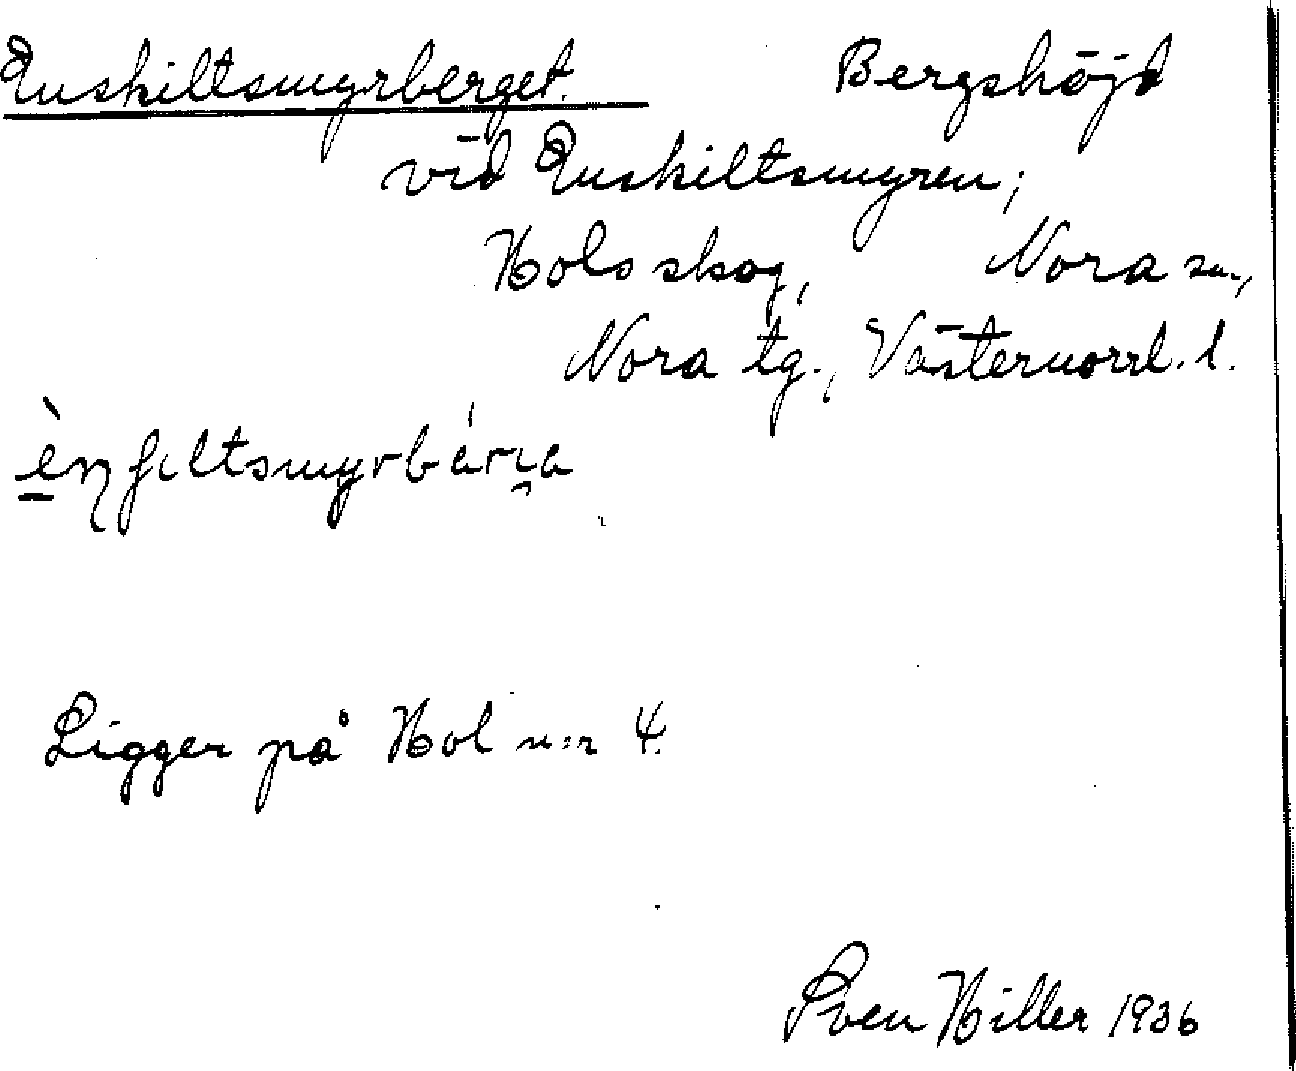 Enskiltsmyrberget. Bergshöjd
vid Enskiltsmyren;
Hols skog, Nora sn.,
Nora tg., Västernorrl. l.
Ligger på Hol n:r 4.
Sven Hiller 1936